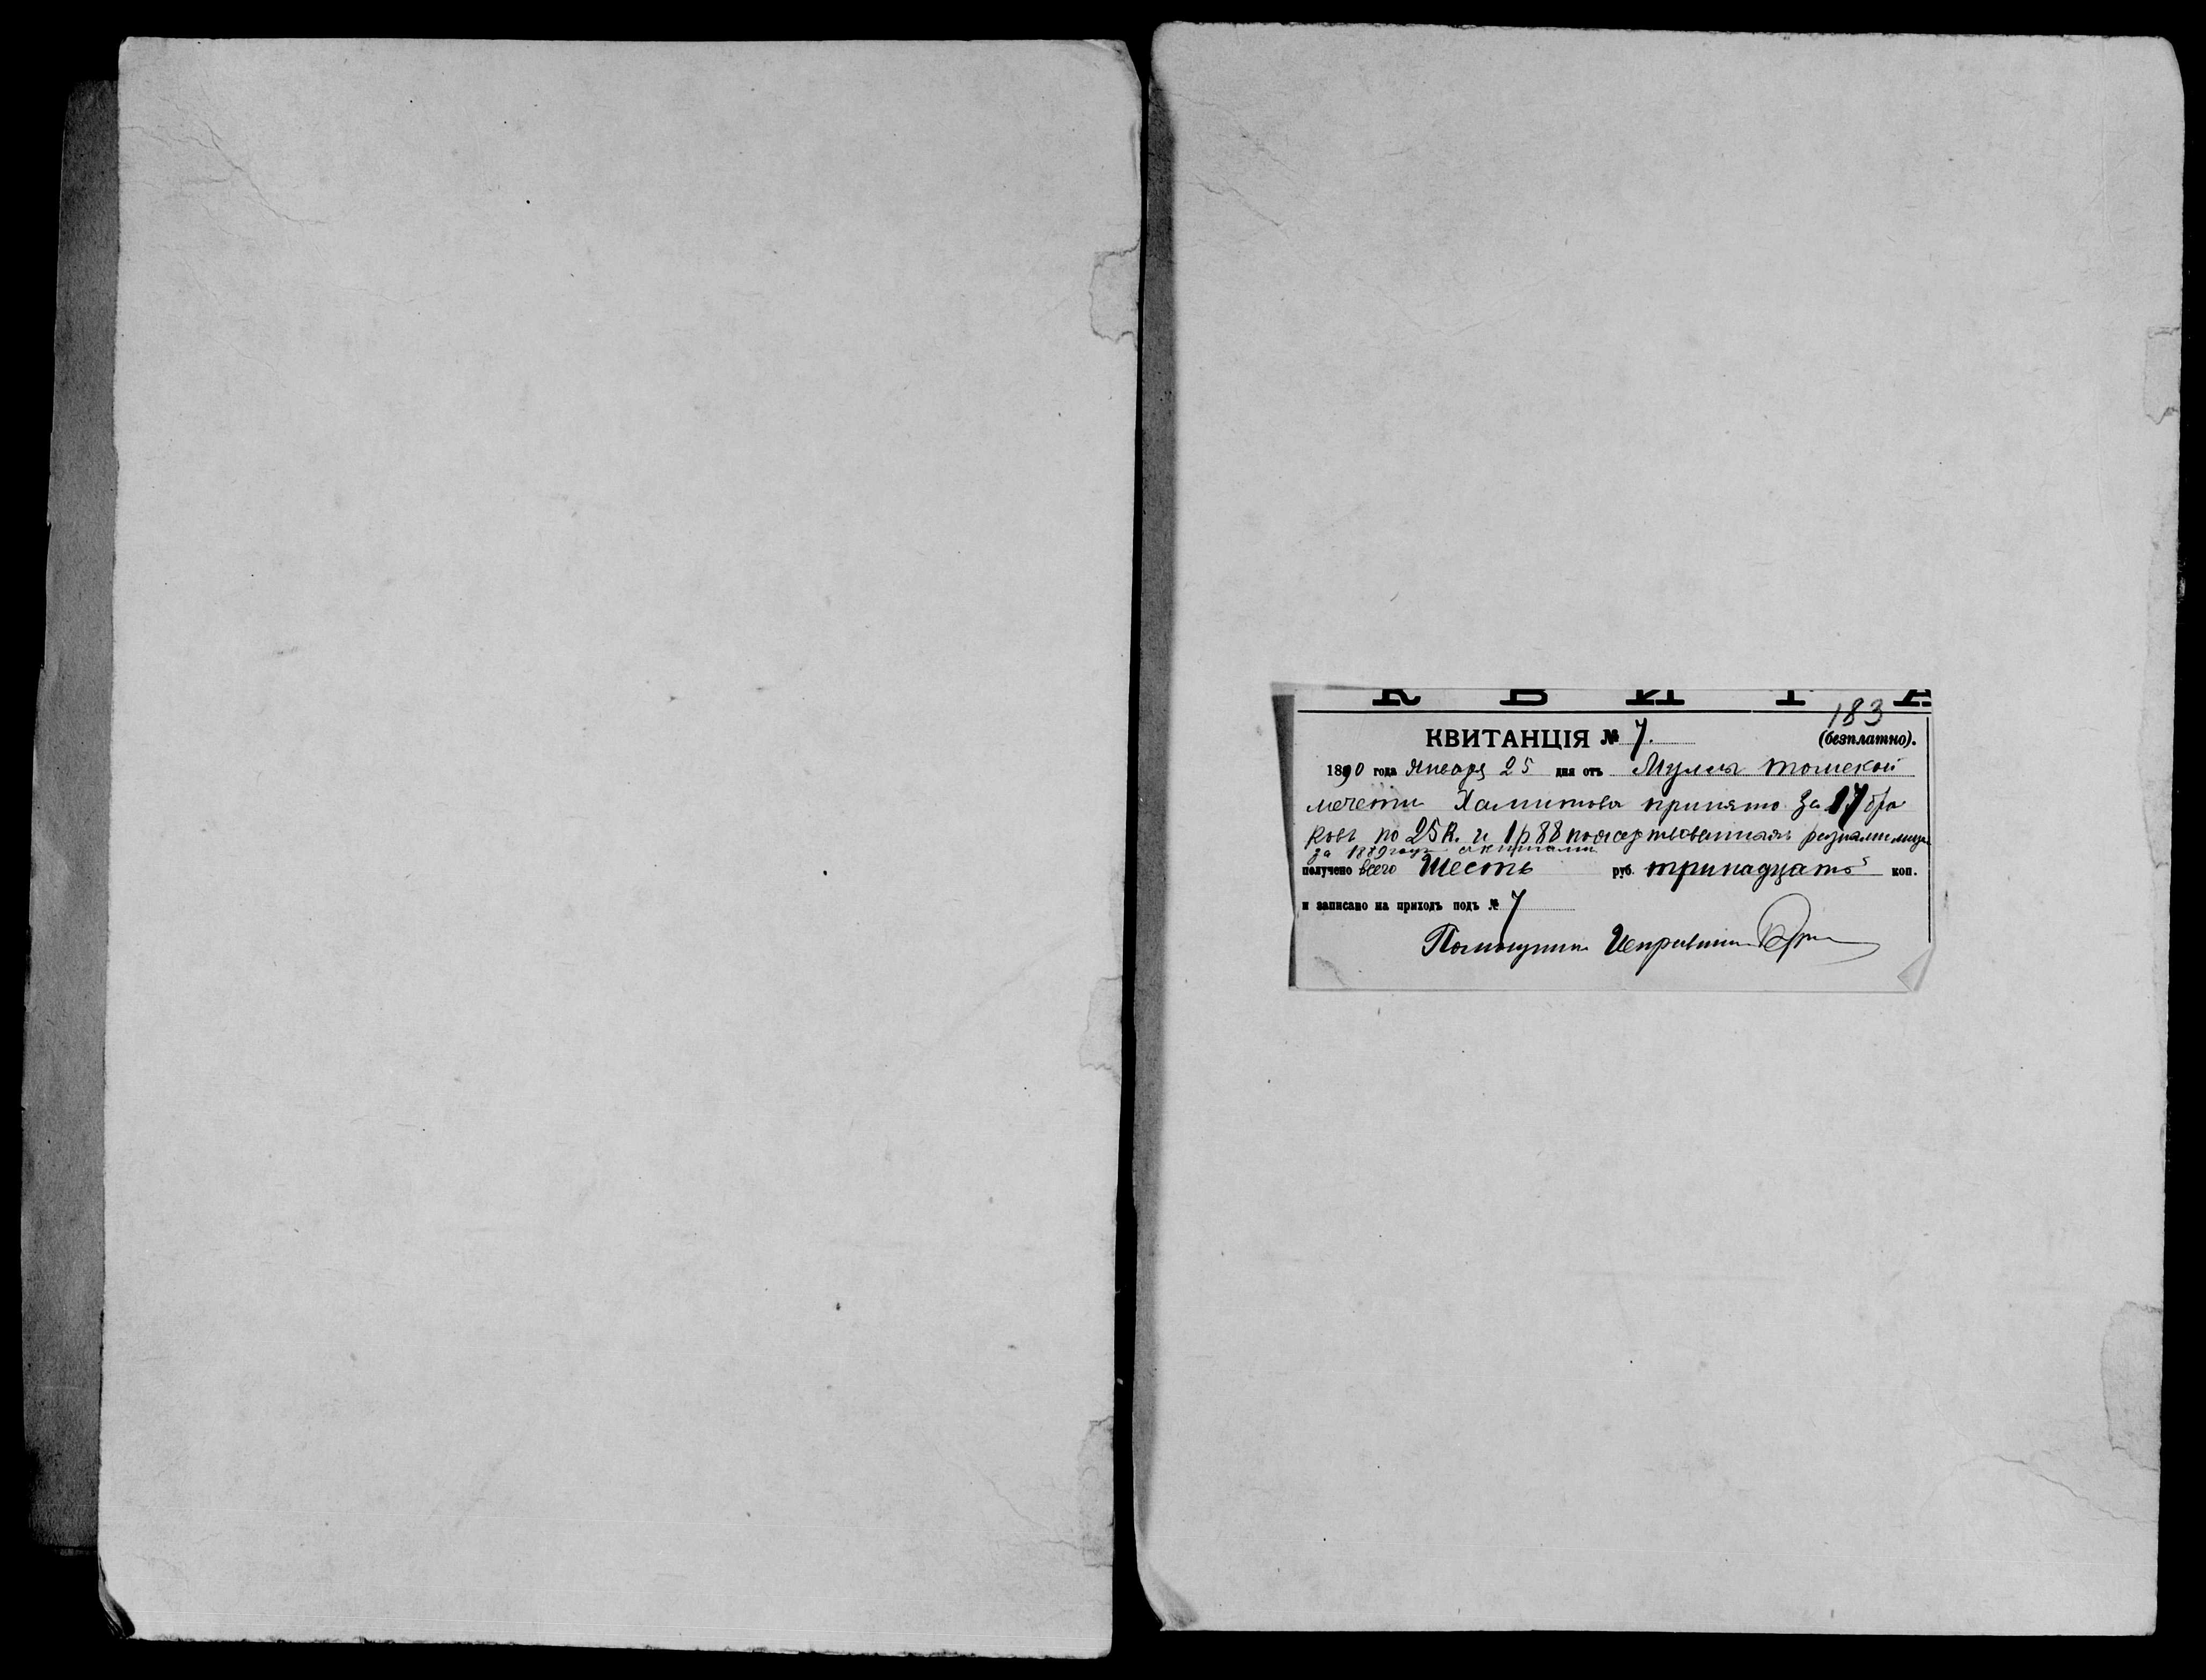 КВИТА
183
КВИТАНЦІЯ № 7.
(безплатно).
1890 года Января 25 дня отъ Муллы томской
мечети Хамитова принято за 17 бра
ковъ по 25 к. и 1 р 88 пожертвованныхъ разными лица
за 1889 годъ
получено всего Шесть руб. тринадцать коп.
и записано на приходъ подъ № 7
Помощникъ Исправника